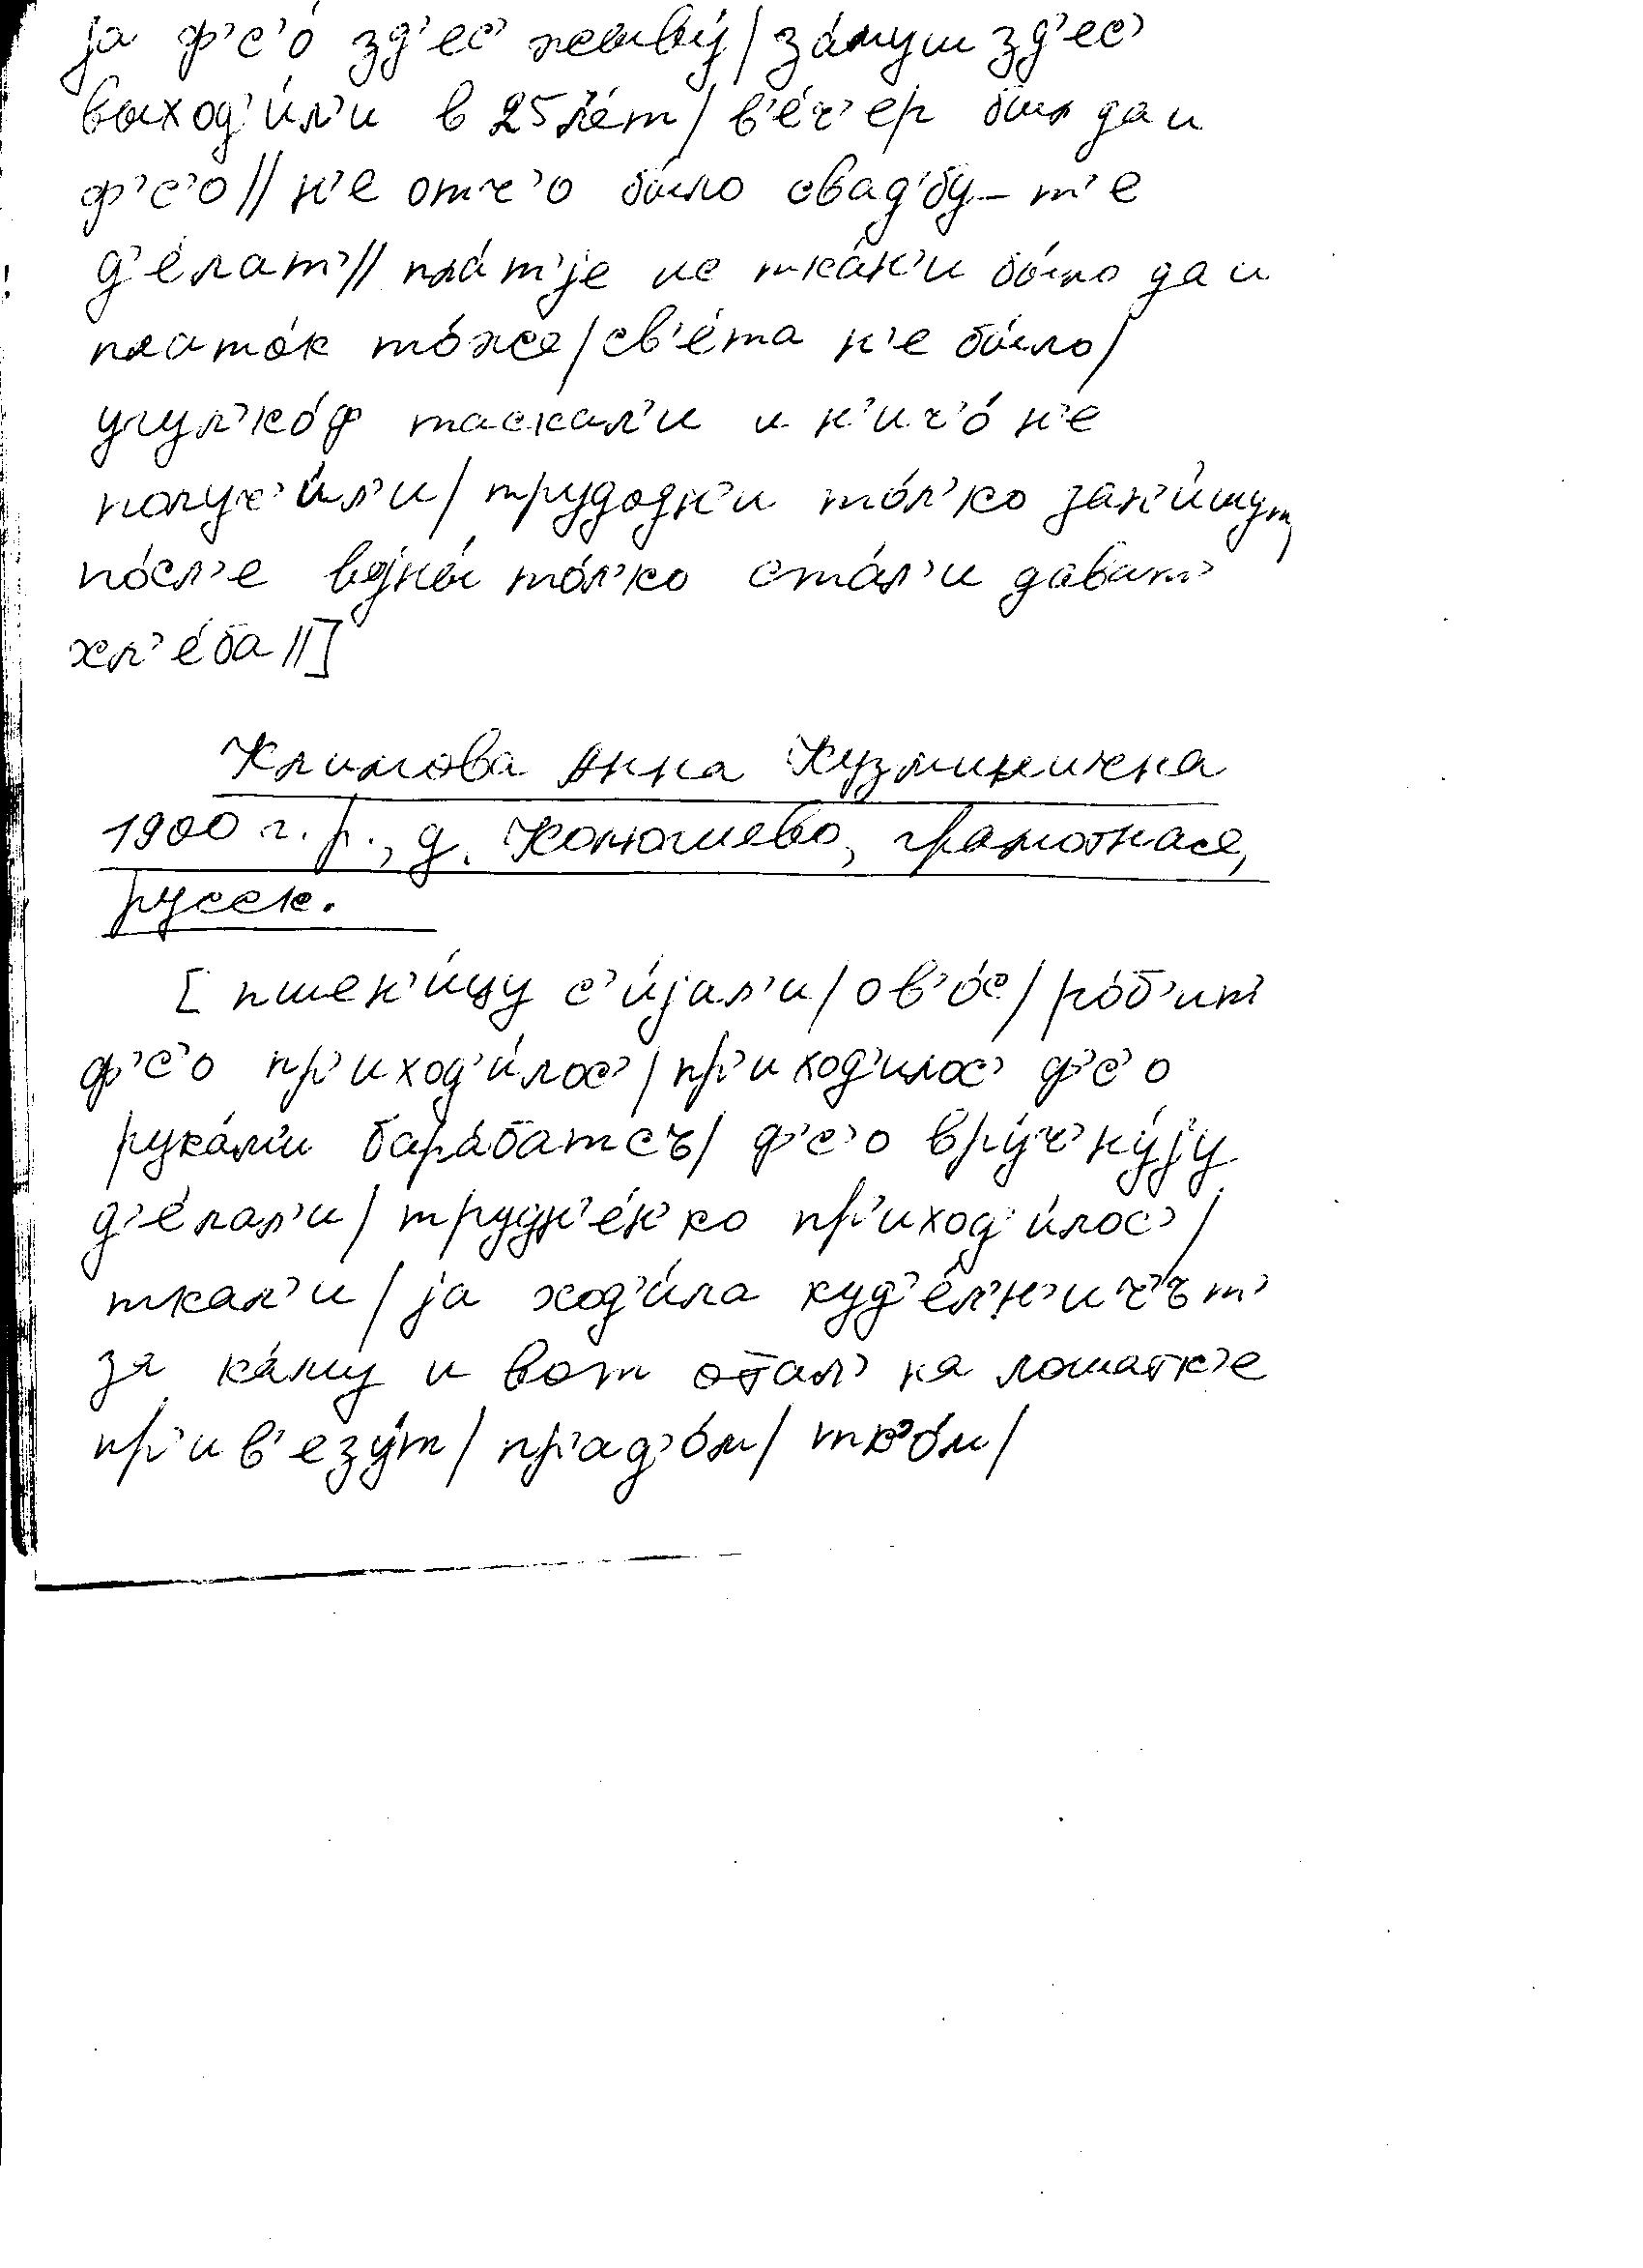 jа ф’с’о́ зд’ес’ жывý/за́муш зд’ес’
выход’и́л’и в 25 л’е́т/ в’е́ч’ер был да и
ф’с’о// н’е отч’о бы́ло свад’бу-т’е
д’е́лат’// пла́т’jе ис тка́н’и бы́ло да и
плато́к то́же/св’е́та н’е бы́ло/
угул’ко́ф таскал’и и н’ич’о́ н’е
получ’и́л’и/ трудодн’и то́л’ко зап’и́шут,
по́сл’е воjны́ то́л’ко ста́л’и дават’
хл’е́ба//]
Климова Анна Кузминична
1900 г. р., д. Конюшево, грамотная,
русск.
[ пшен’и́цу с’и́jал’и/ов’о́с/ро́б’ит’
ф’с’о пр’иход’и́лос’/пр’иход’илос’ ф’с’о
рука́м’и бара́батсъ/ ф’с’о вру́ч’ну́jу
д’е́лал’и/ трудн’е́н’ко пр’иход’и́лос’/
ткал’и/ jа ход’и́ла куд’е́л’н’ич’ът’
за ка́му и вот отал’ на лошатк’е
пр’ив’езу́т/ пр’ад’о́м/ тк’о́м/